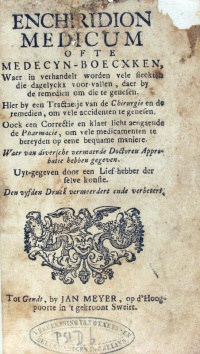 ENCHIRIDION
MEDICUM
OFTE
MEDECYN-BOECXKEN,
Waer in verhandelt worden vele sieckten
die dagelyckx voor-vallen, daer by
de remedien om die te genesen.
Hier by een Tractaetje van de Chirurgie en de
remedien, om vele accidenten te genesen.
Oock een Correctie en klaer licht aengaende
de Pharmacie, om vele medicamenten te
bereyden op eene bequame maniere.
Waer van diversche vermaerde Doctoren Appro-
batie hebben gegeven.
Uyt-gegeven door een Lief-hebber der
selve konste.
Den vyfden Druck vermeerdert ende verbetert.
Tot Gendt, by JAN MEYER, op d'Hoog-
poorte in 't gekroont Sweirt.